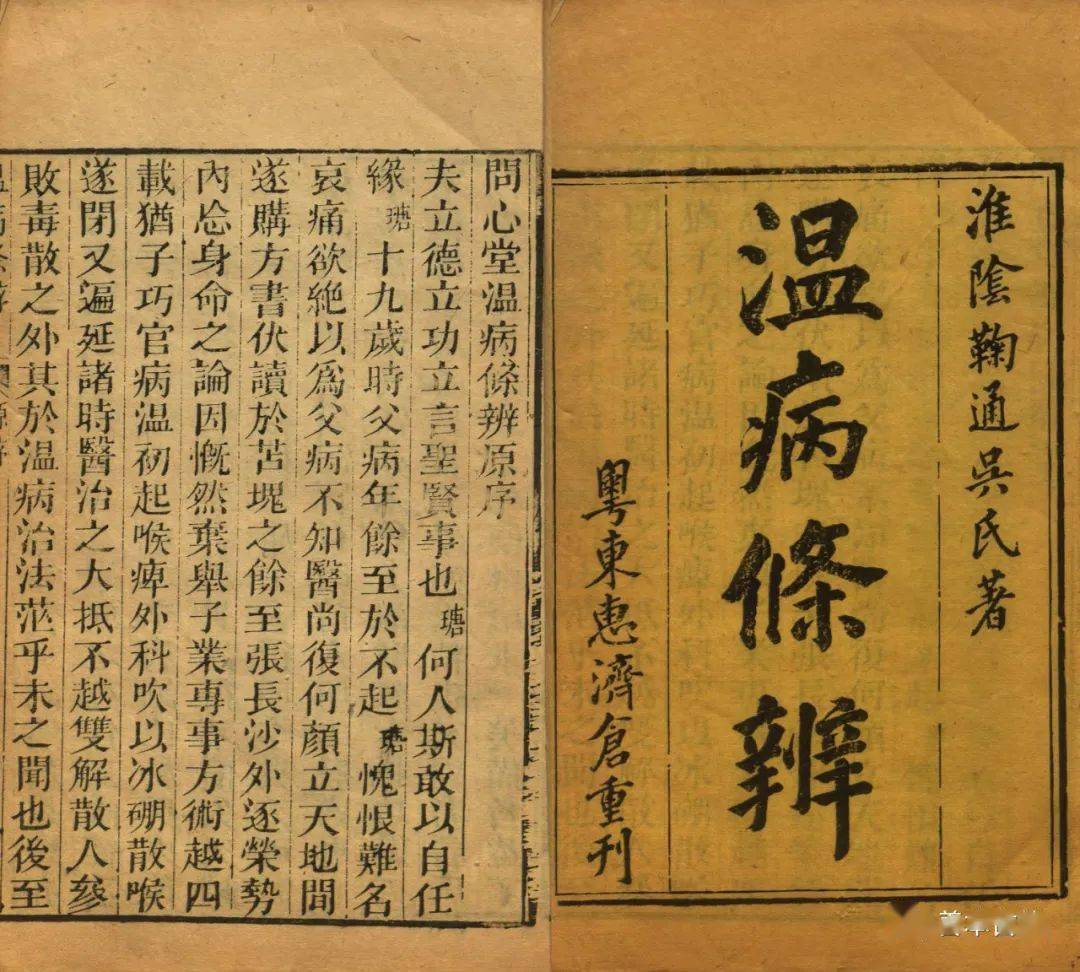 淮陰鞠通吳氏著
温病條辨
粤東惠濟倉重刊
問心堂温病條辨原序
夫立德立功立言聖賢事也瑭何人斯敢以自任
緣瑭十九歲時父病年餘至於不起瑭愧恨難名
哀痛欲絶以爲父病不知醫尚復何顔立天地間
遂購方書伏讀於苫塊之餘至張長沙外逐榮勢
內忘身命之論因慨然棄舉子業專事方術越四
載猶子巧官病温初起喉痺外科吹以冰硼散喉
遂閉又遍延諸時醫治之大抵不越雙解散人參
敗毒散之外其於温病治法茫乎未之聞也後至